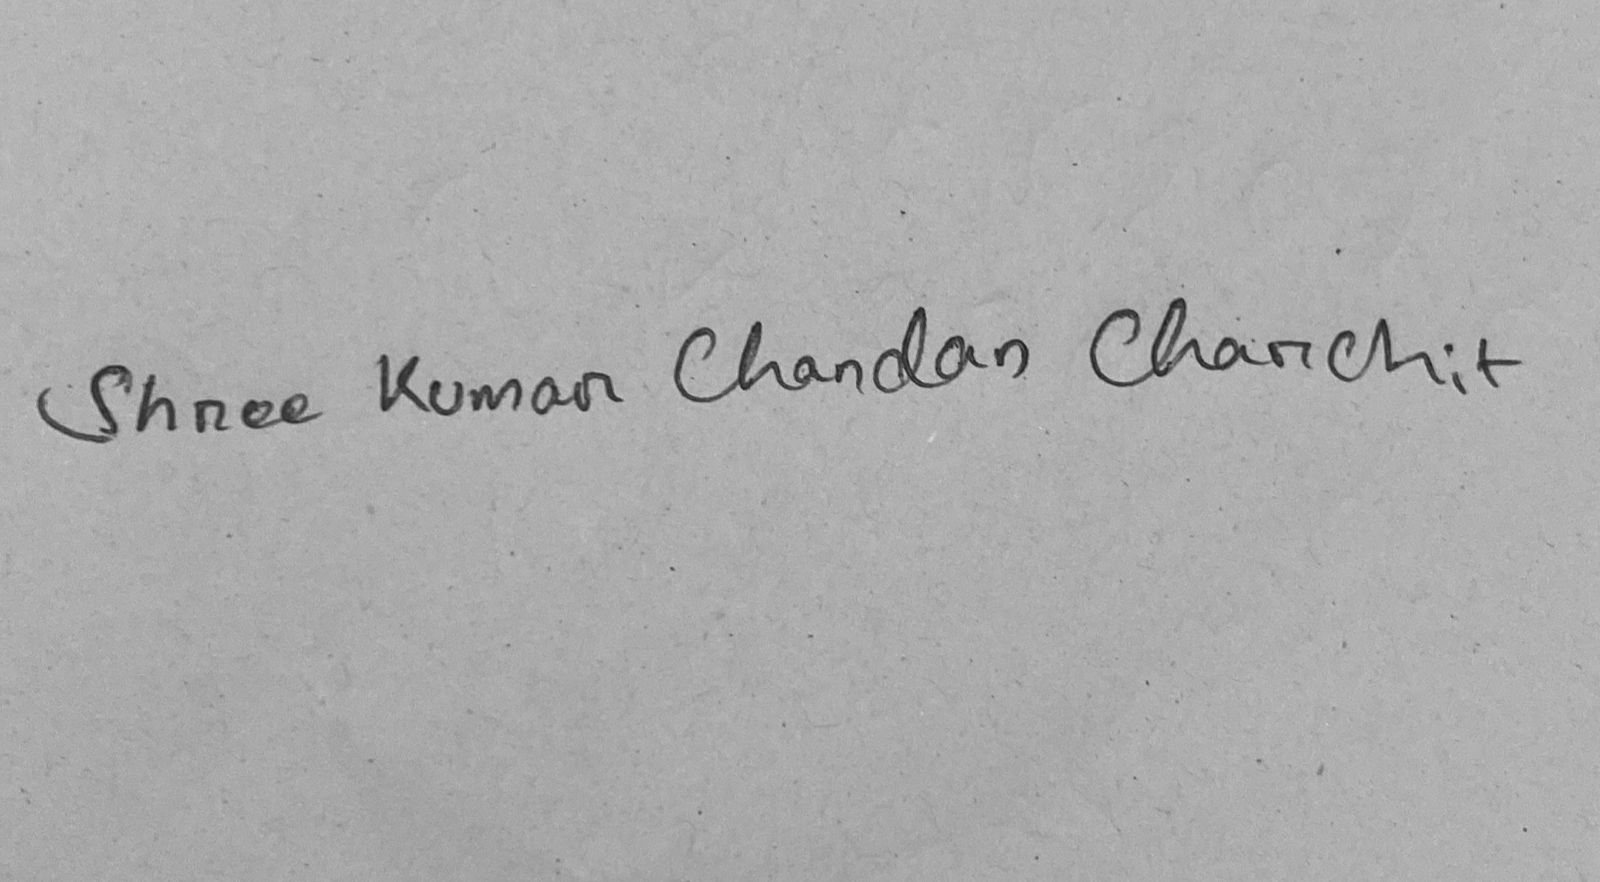 Shree Kumar Chandan Charchit